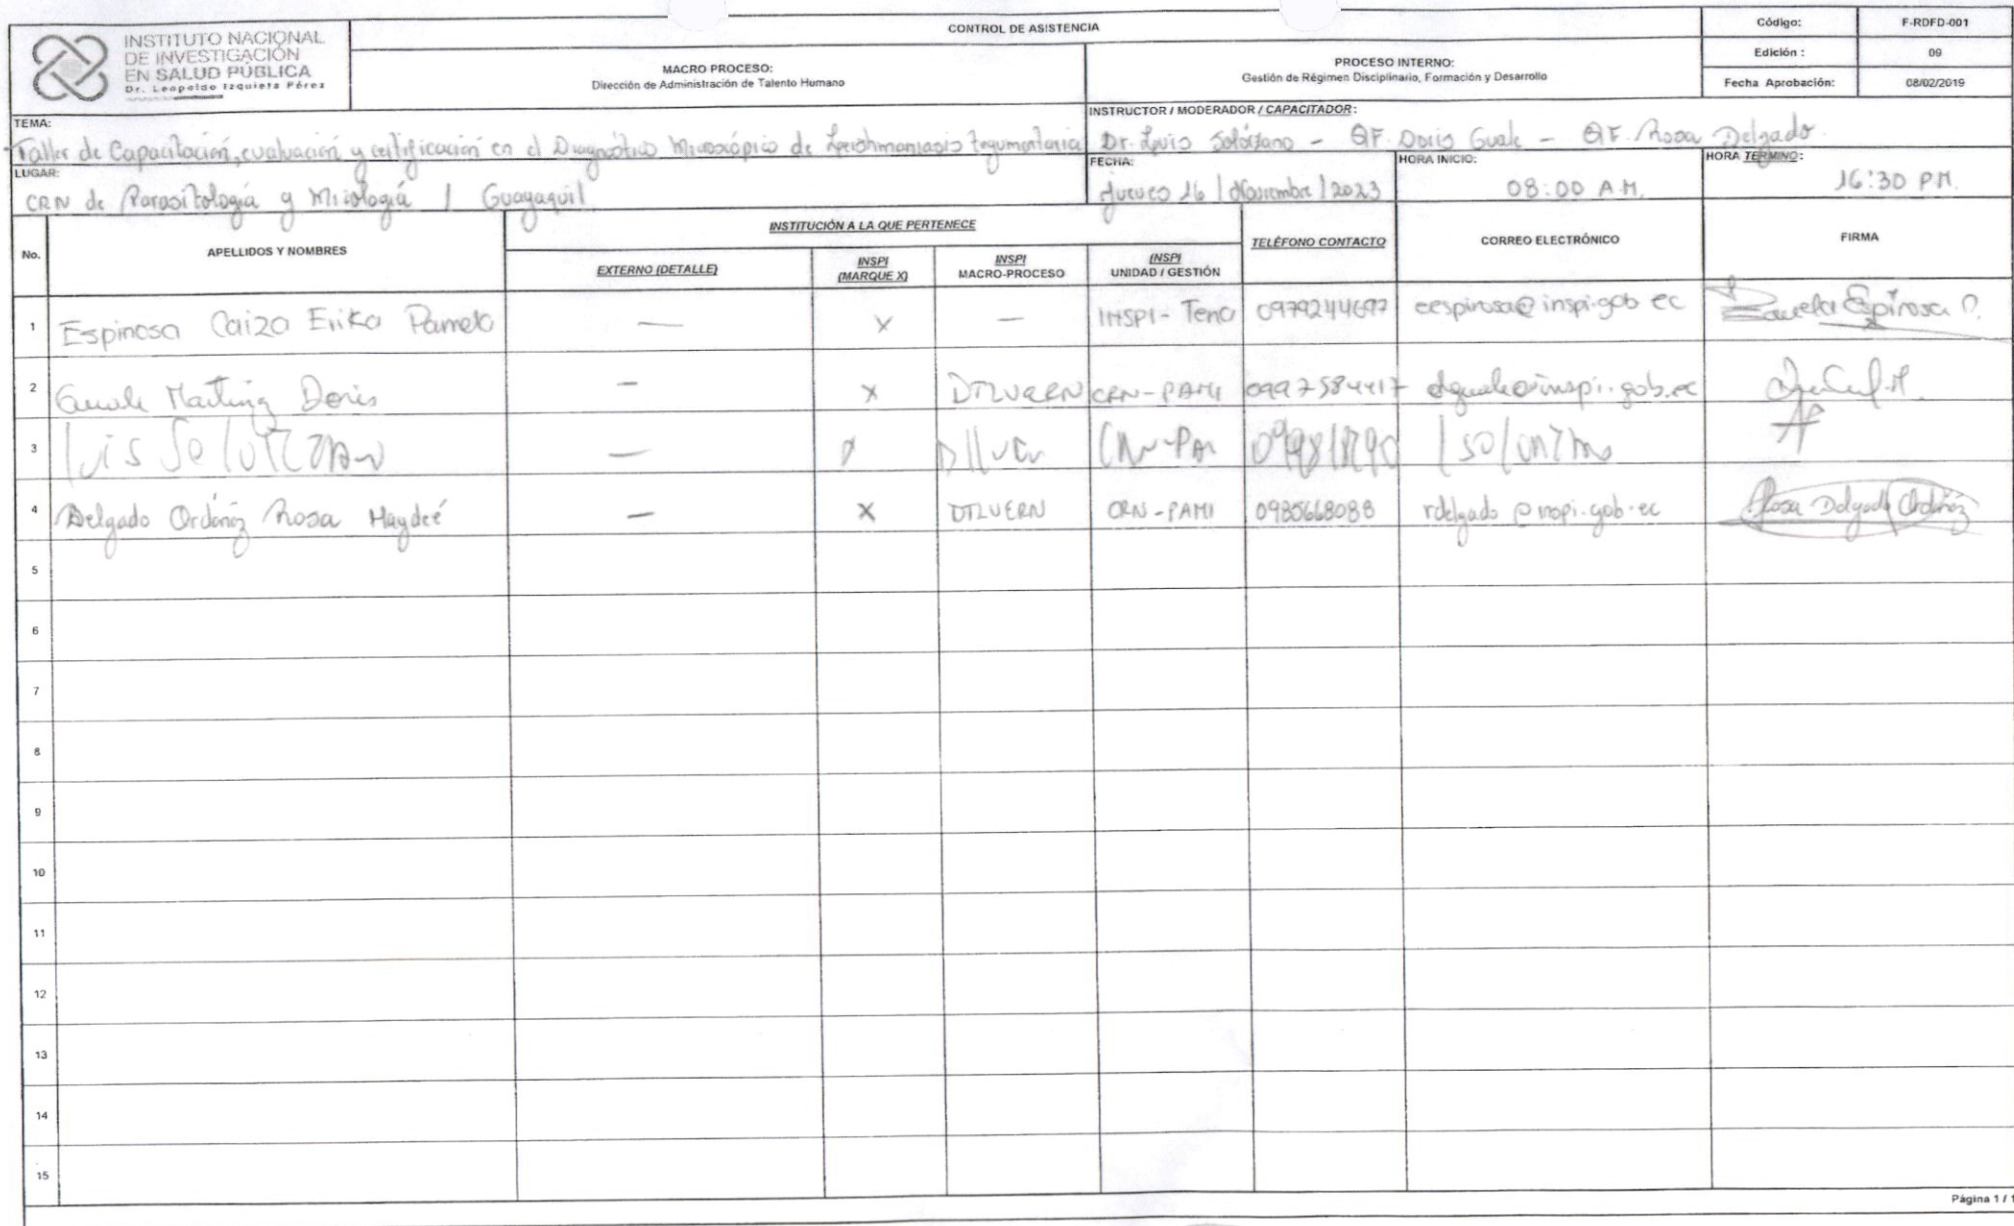 INSTITUTO NACIONAL
DE INVESTIGACIÓN
EN SALUD PÚBLICA
Dr. Leopoldo Izquieta Pérez
CONTROL DE ASISTENCIA
Código: F-RDFD-001
MACRO PROCESO:
Dirección de Administración de Talento Humano
PROCESO INTERNO:
Gestión de Régimen Disciplinario, Formación y Desarrollo
Edición : 09
Fecha Aprobación: 08/02/2019
TEMA:
Taller de Capacitación, evaluación y certificación en el Diagnóstico Microscópico de Leishmaniasis tegumentaria
INSTRUCTOR / MODERADOR / CAPACITADOR:
Dr. Luis Solórzano - QF. Doris Guale - QF. Rosa Delgado.
LUGAR:
CRN de Parasitología y Micología / Guayaquil
FECHA:
Jueves 16 / Noviembre / 2023
HORA INICIO:
08:00 A.M.
HORA TERMINO:
16:30 P.M.
No. APELLIDOS Y NOMBRES INSTITUCIÓN A LA QUE PERTENECE TELÉFONO CONTACTO CORREO ELECTRÓNICO FIRMA
EXTERNO (DETALLE) INSPI (MARQUE X) INSPI MACRO-PROCESO INSPI UNIDAD / GESTIÓN
1 Espinosa Caiza Erika Pamela — X — INSPI- Tena 0979244697 eespinosa@inspi.gob ec Espinosa
2 Guale Doris — X DTLVERN CRN-PAMI 0997584417 dguale@inspi.gob.ec
3 Luis Solorzano —
4 Delgado Ordóñez Rosa Haydeé — X DTLVERN CRN-PAMI 0985668088 rdelgado @inspi.gob.ec Rosa Delgado Ordóñez
5
6
7
8
9
10
11
12
13
14
15
Página 1 / 1